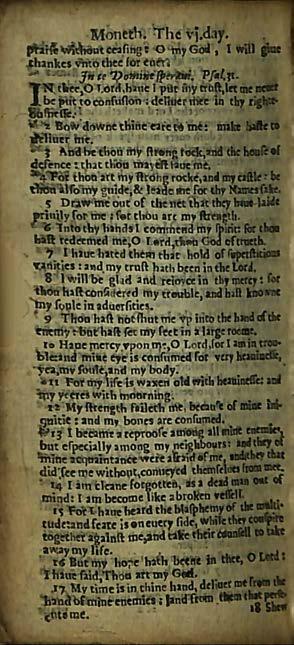 Moneth. The vj.day.
praise without ceasing: O my God, I will giue
thankes vnto thee for euer.
In te Domine speraui, Psal.31.
IN thee, O Lord, haue I put my trust, let me neuer
be put to confusion: deliuer mee in thy righte-
ousnesse.
2 Bow downe thine eare to me: make haste to
deliuer me.
3 And be thou my strong rock, and the house of
defence: that thou mayest saue me.
4 For thou art my strong rocke, and my castle: be
thou also my guide, & leade me for thy Names sake.
5 Draw me out of the net that they haue laide
priuily for me: for thou art my strength.
6 Into thy hands I commend my spirit: for thou
hast redeemed me, O Lord, thou God of trueth.
7 I haue hated them that hold of superstitious
vanities: and my trust hath been in the Lord.
8 I will be glad and reioyce in thy mercy: for
thou hast considered my trouble, and hast knowne
my soule in aduersities.
9 Thou hast not shut me vp into the hand of the
enemy: but hast set my feet in a large roome.
10 Haue mercy vpon me, O Lord, for I am in trou-
ble: and mine eye is consumed for very heauinesse,
yea, my soule, and my body.
11 For my life is waxen old with heauinesse: and
my yeeres with mourning.
12 My strength faileth me, because of mine ini-
quitie: and my bones are consumed.
13 I became a reproofe among all mine enemies,
but especially among my neighbours: and they of
mine acquaintance were afraid of me, and they that
did see me without, conueyed themselues from mee.
14 I am cleane forgotten, as a dead man out of
mind: I am become like a broken vessell.
15 For I haue heard the blasphemy of the multi-
tude: and feare is on euery side, while they conspire
together against me, and take their counsell to take
away my life.
16 But my hope hath beene in thee, O Lord:
I haue said, Thou art my God.
17 My time is in thine hand, deliuer me from the
hand of mine enemies: and from them that perse-
cute me.
18 Shew